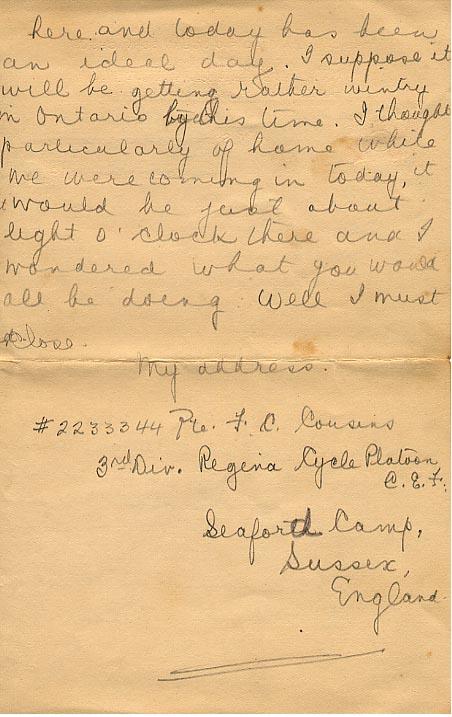 here and today has been
an ideal day. I suppose it
will be getting rather wintry
in Ontario by this time. I thought
particularly of home while
we were coming in today, it
would be just about
eight o'clock there and I
wondered what you would
all be doing Well I must
close.
My address.
#2233344 Pte. F. C. Cousins
3rd Div. Regina Cycle Platoon
C. E. F.
Seaforth Camp,
Sussex,
England.